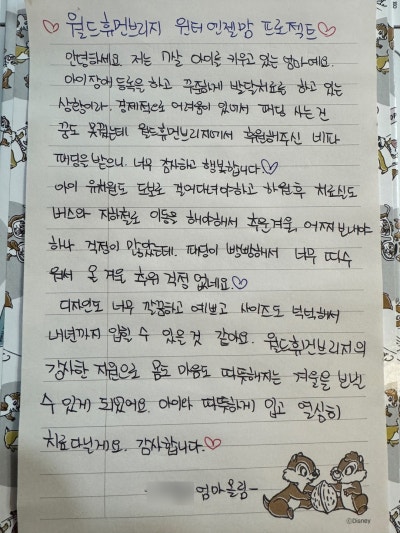 ♡월드휴먼브리지 윈터 엔젤맘 프로젝트♡
안녕하세요 저는 7살 아이를 키우고 있는 엄마예요.
아이 장애 등록을 하고 꾸준하게 발달치료를 하고 있는
상황이라. 경제적으로 어려움이 있어서 패딩 사는건
꿈도 못꿨는데 월드휴먼브리지에서 후원해주신 비타
패딩을 받으니. 너무 감사하고 행복합니다♡
아이 유치원도 도보로 걸어다녀야하고 하원후 치료실도
버스와 지하철로 이동을 해야해서 추운겨울, 어찌 보내야
하나 걱정이 많았는데. 패딩이 빵빵해서 너무 따수
워서 올 겨울 추위 걱정 없네요♡
디자인도 너무 깔끔하고 예쁘고 사이즈도 넉넉해서
내년까지 입힐 수 있을것 같아요. 월드휴먼브리지의
감사한 지원으로 몸도 마음도 따뜻해지는 겨울을 보낼
수 있게 되었어요. 아이와 따뜻하게 입고 열심히
치료다닐게요. 감사합니다.♡
엄마올림-
©Disney